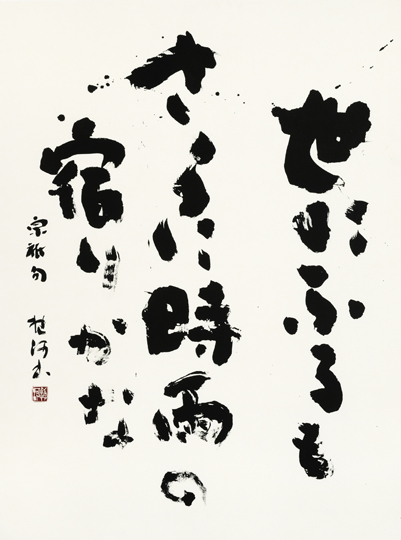 世にふるも
さらに時雨の
宿りかな
宗祇句